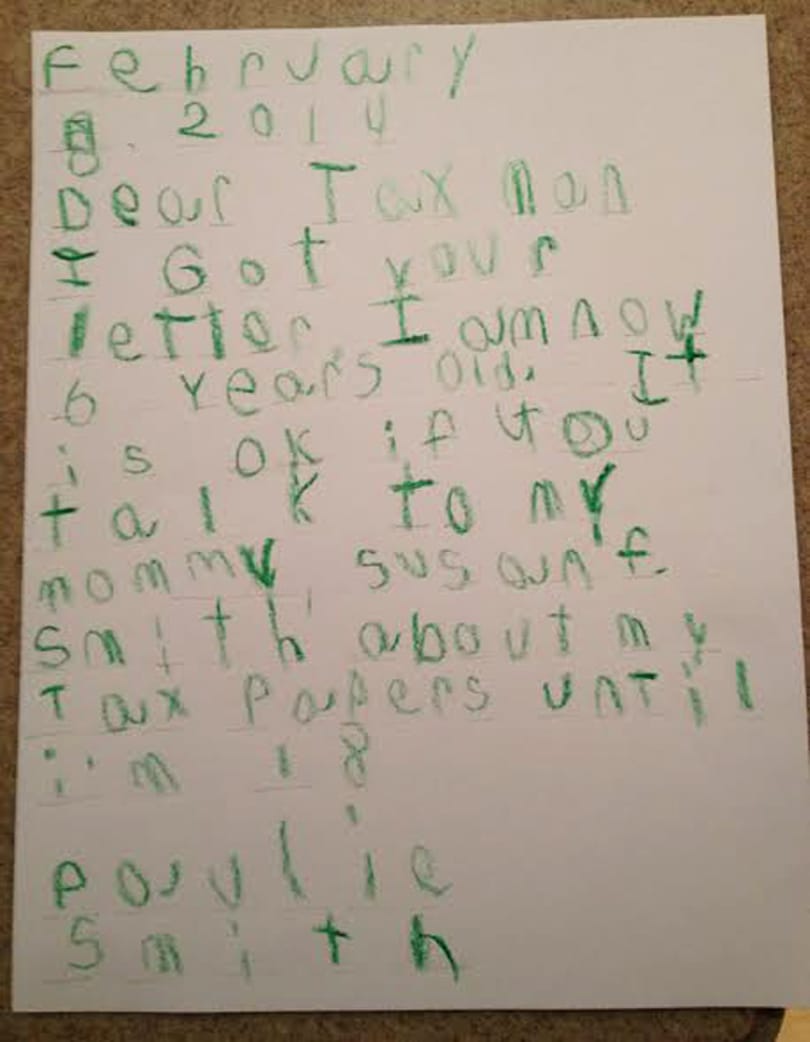 February
8. 2014
Dear Tax man
I Got your
letter. I am now
6 years old. It
is ok if you
talk to my
mommy susan f.
smith about my
Tax Papers until
i'm 18
paulie
Smith